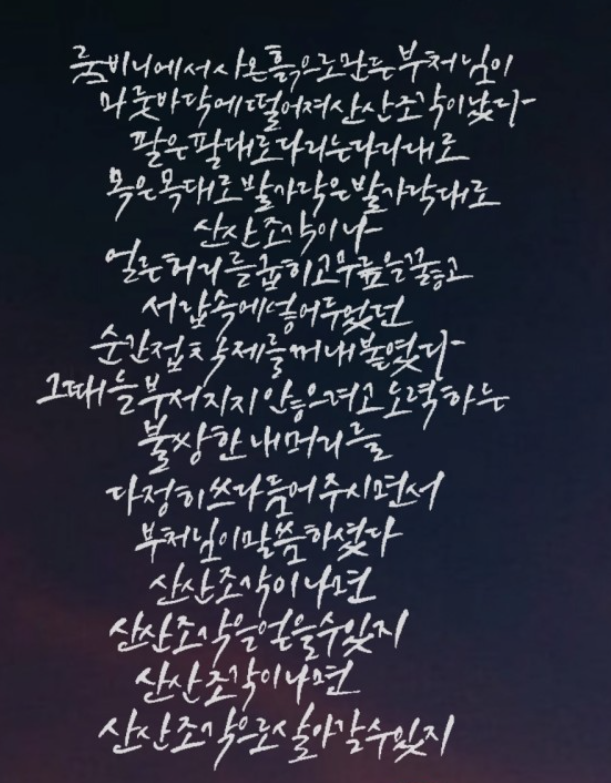 룸비니에서 사온 흙으로 만든 부처님이
마룻바닥에 떨어져 산산조각이 났다
팔은 팔대로 다리는 다리대로
목은 목대로 발가락은 발가락대로
산산조각이 나
얼른 허리를 굽히고 무릎을 꿇고
서랍 속에 넣어두었던
순간접착제를 꺼내 붙였다
그때 늘 부서지지 않으려고 노력하는
불쌍한 내 머리를
다정히 쓰다듬어 주시면서
부처님이 말씀하셨다
산산조각이 나면
산산조각을 얻을 수 있지
산산조각이 나면
산산조각으로 살아갈 수 있지